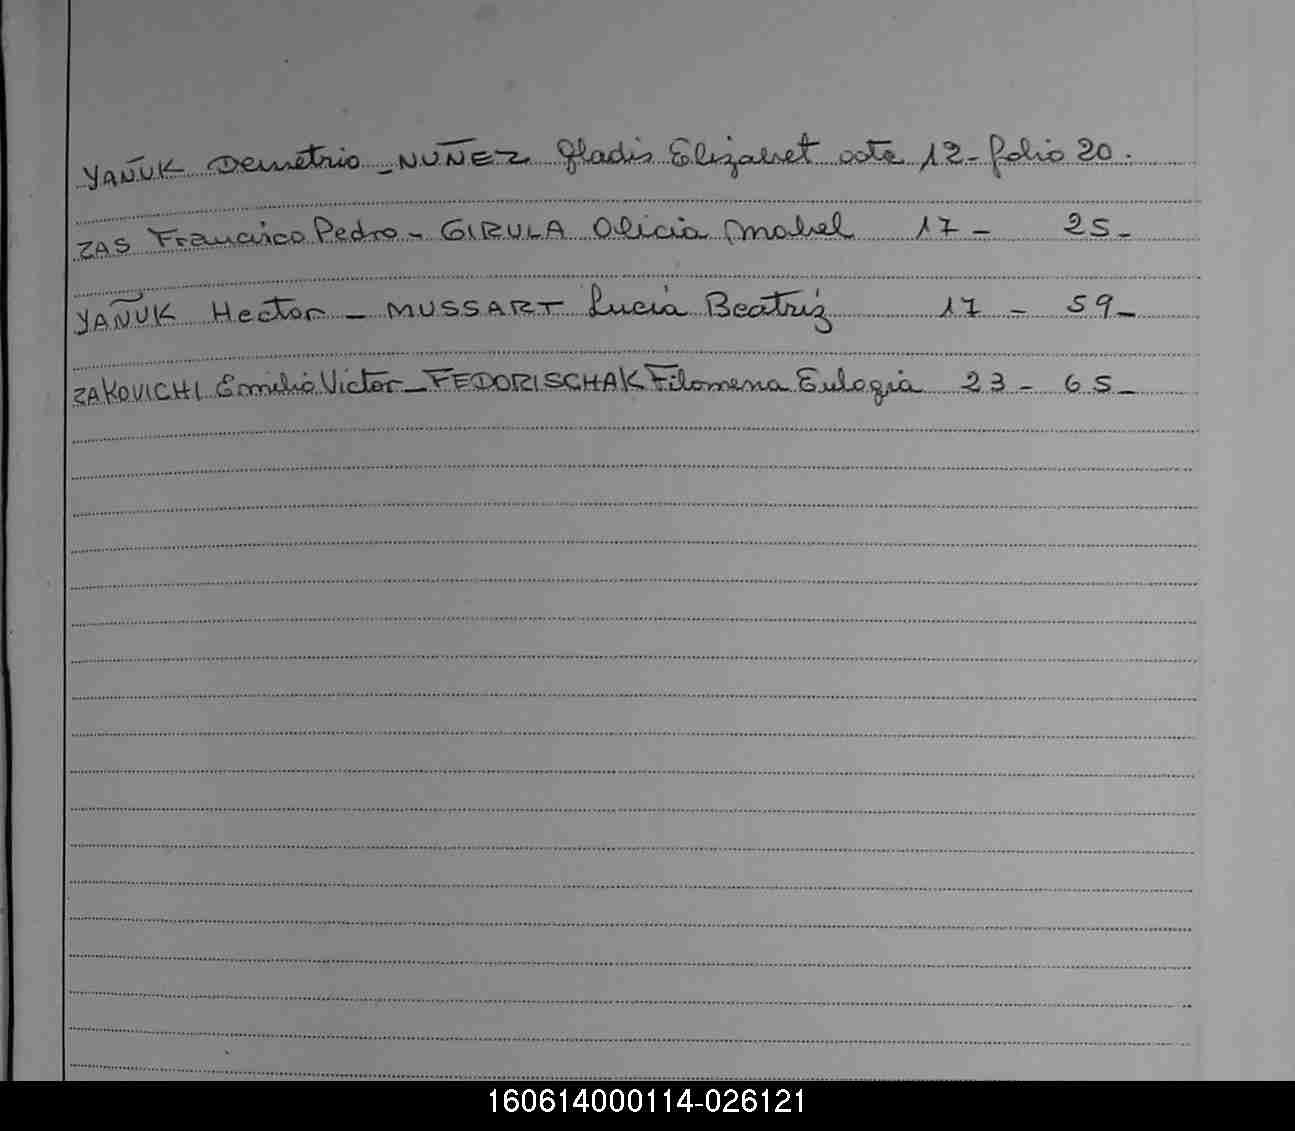 YAÑUK Demetrio - NUÑEZ Gladis Elizabet acta 12 - folio 20.
ZAS Francisco Pedro - GIRULA Alicia Mabel 17 - 25 -
YAÑUK Hector - MUSSART Lucia Beatriz 17 - 59 -
ZAKOVICHI Emilio Victor - FEDORISCHAK Filomena Eulogia 23 - 65 -
160614000114-026121